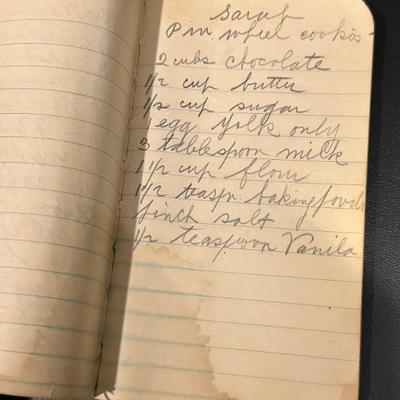 Sarah
Pin wheel cookis
2 cubs chocolate
1/2 cup butter
1/2 cup sugar
1 egg yolk only
3 tablespoon milk
1 1/2 cup flour
1 1/2 teaspn baking powd
pinch salt
1/2 teaspoon Vanila